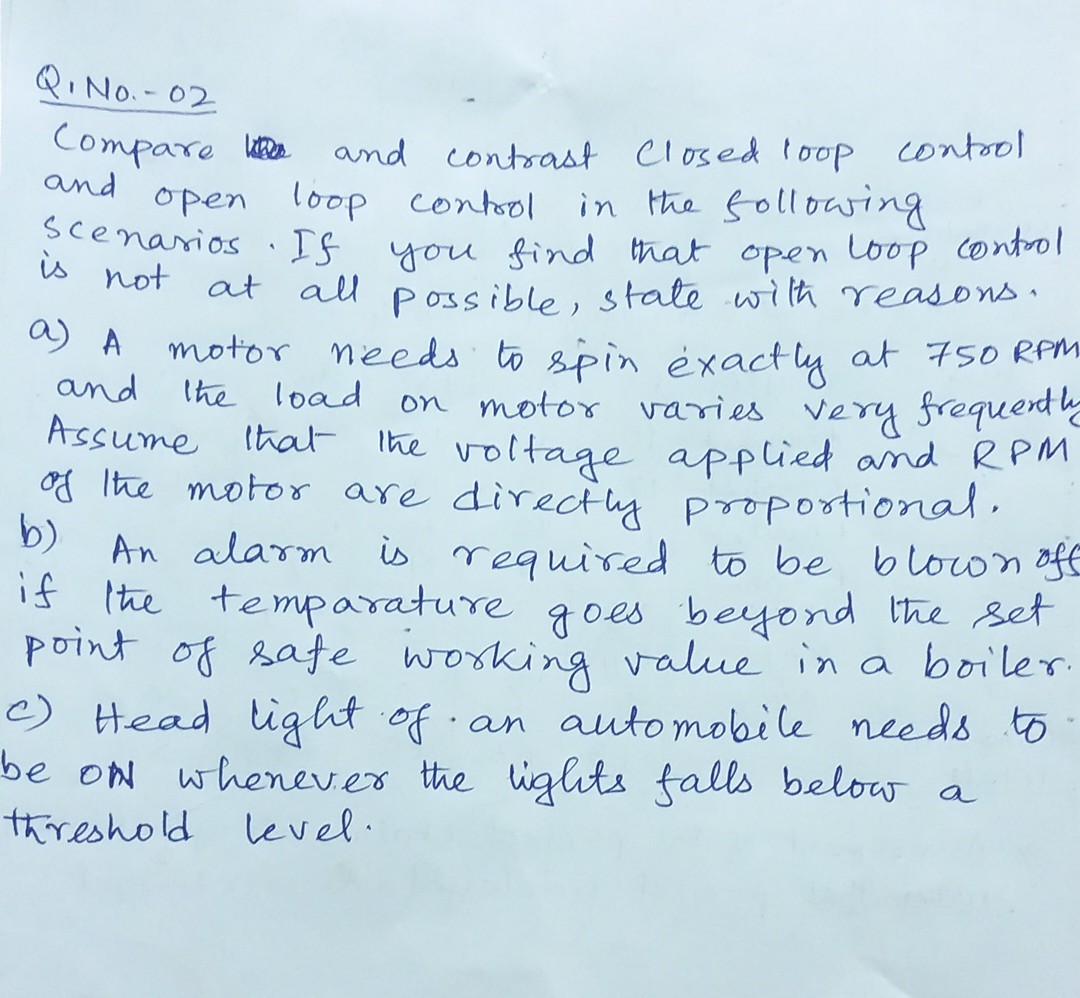 Q.No.-02
Compare and contrast Closed loop control
and open loop control in the following
scenarios. If you find that open loop control
is not at all possible, state with reasons.
a) A motor needs to spin exactly at 750 RPM
and the load on motor varies very frequently
Assume that the voltage applied and RPM
of the motor are directly proportional.
b) An alarm is required to be blown off
if the temparature goes beyond the set
point of safe working value in a boiler.
c) Head light of an automobile needs to
be ON whenever the lights falls below a
threshold level.